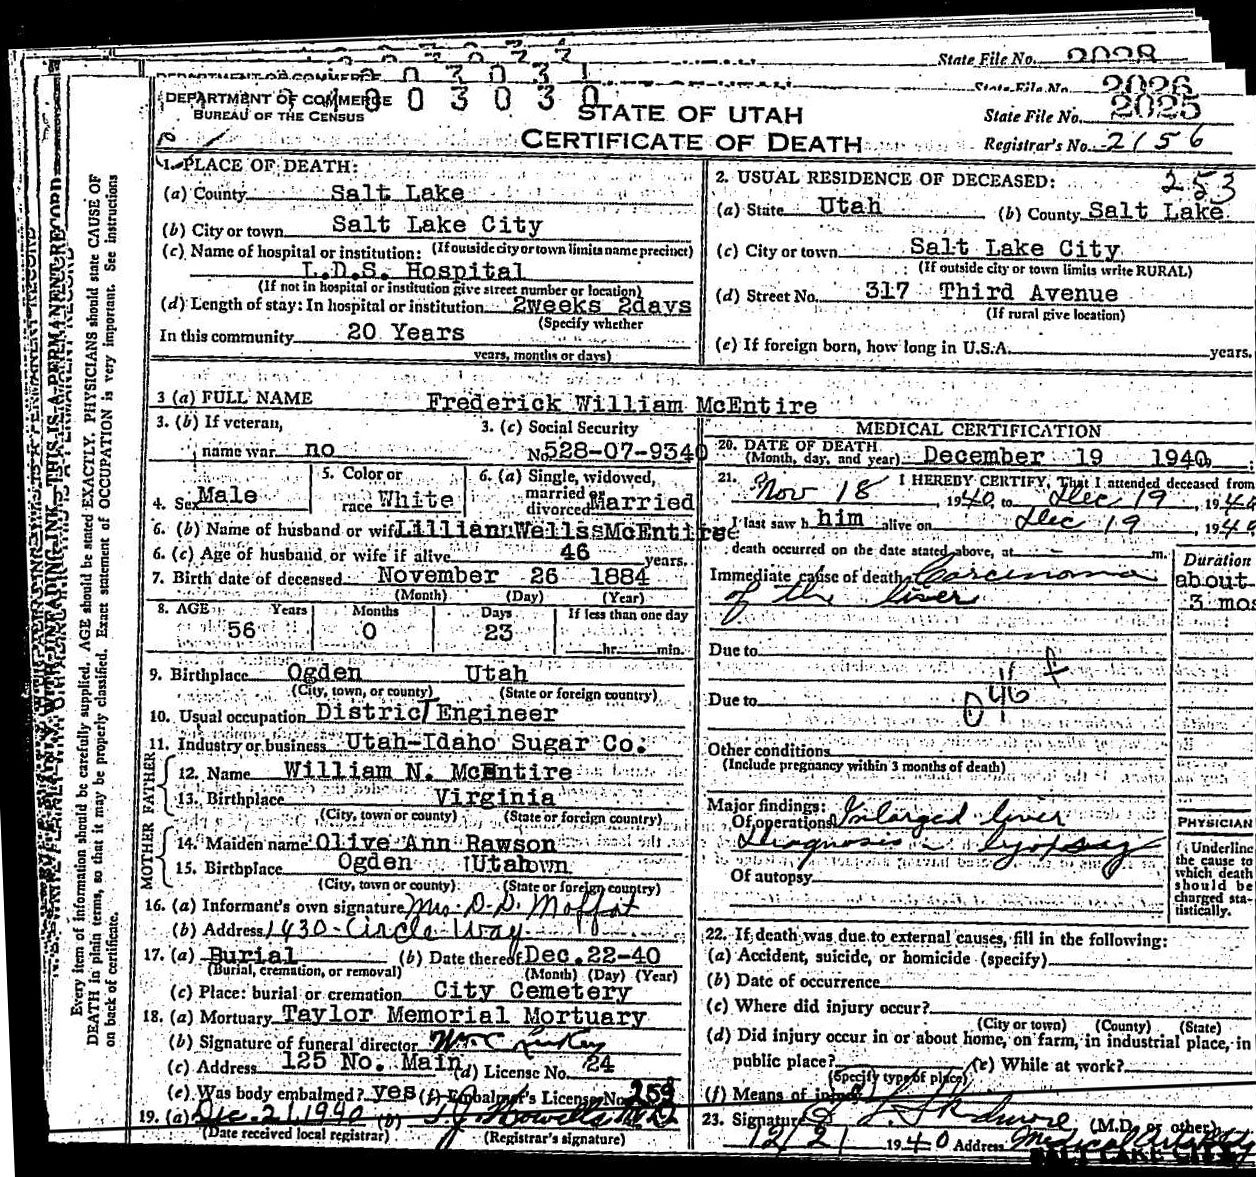 State File No. 2028
DEPARTMENT OF COMMERCE
State File No. 2026
DEPARTMENT OF COMMERCE 003030
BUREAU OF THE CENSUS
STATE OF UTAH
CERTIFICATE OF DEATH
State File No. 2025
Registrar's No. 2156
253
1. PLACE OF DEATH:
(a) County Salt Lake
(b) City or town Salt Lake City
(If outside city or town limits name precinct)
(c) Name of hospital or institution:
L.D.S. Hospital
(If not in hospital or institution give street number or location)
(d) Length of stay: In hospital or institution 2weeks 2days
(Specify whether
In this community 20 Years
years, months or days)
2. USUAL RESIDENCE OF DECEASED:
(a) State Utah (b) County Salt Lake
(c) City or town Salt Lake City
(If outside city or town limits write RURAL)
(d) Street No. 317 Third Avenue
(If rural give location)
(e) If foreign born, how long in U.S.A. years.
3 (a) FULL NAME Frederick William McEntire
3. (b) If veteran,
name war no
3. (c) Social Security
No. 528-07-9340
4. Sex Male
5. Color or
race White
6. (a) Single, widowed,
married or
divorced Married
6. (b) Name of husband or wife Lillian Wells McEntire
6. (c) Age of husband or wife if alive 46 years.
7. Birth date of deceased November 26 1884
(Month) (Day) (Year)
8. AGE Years Months Days If less than one day
56 0 23 hr. min.
9. Birthplace Ogden Utah
(City, town, or county) (State or foreign country)
10. Usual occupation District Engineer
11. Industry or business Utah-Idaho Sugar Co.
FATHER
12. Name William N. McEntire
13. Birthplace Virginia
(City, town or county) (State or foreign country)
MOTHER
14. Maiden name Olive Ann Rawson
15. Birthplace Ogden Utah
(City, town or county) (State or foreign country)
16. (a) Informant's own signature Mrs. D. D. Moffat
(b) Address 1430 - Circle Way
17. (a) Burial (b) Date thereof Dec. 22-40
(Burial, cremation, or removal) (Month) (Day) (Year)
(c) Place: burial or cremation City Cemetery
18. (a) Mortuary Taylor Memorial Mortuary
(b) Signature of funeral director
(c) Address 125 No. Main (d) License No. 24
(e) Was body embalmed? yes (f) Embalmer's License No. 259
19. (a) Dec. 21 1940 (b)
(Date received local registrar) (Registrar's signature)
MEDICAL CERTIFICATION
20. DATE OF DEATH
(Month, day, and year) December 19 1940
21. I HEREBY CERTIFY, That I attended deceased from
Nov 18, 1940, to Dec 19, 1940
I last saw h him alive on Dec 19, 1940
death occurred on the date stated above, at m.
Duration
Immediate cause of death Carcinoma
of the liver
about
3 mos
Due to
Due to
046 f
Other conditions
(Include pregnancy within 3 months of death)
Major findings:
Of operations Enlarged liver
Diagnosis - byopsy
Of autopsy
PHYSICIAN
Underline
the cause to
which death
should be
charged sta-
tistically.
22. If death was due to external causes, fill in the following:
(a) Accident, suicide, or homicide (specify)
(b) Date of occurrence
(c) Where did injury occur?
(City or town) (County) (State)
(d) Did injury occur in or about home, on farm, in industrial place, in
public place? (e) While at work?
(Specify type of place)
(f) Means of injury
23. Signature (M.D. or other)
12/21 1940 Address Medical Arts
SALT LAKE CITY
Every item of information should be carefully supplied. AGE should be stated EXACTLY. PHYSICIANS should state CAUSE OF
DEATH in plain terms, so that it may be properly classified. Exact statement of OCCUPATION is very important. See instructions
on back of certificate.